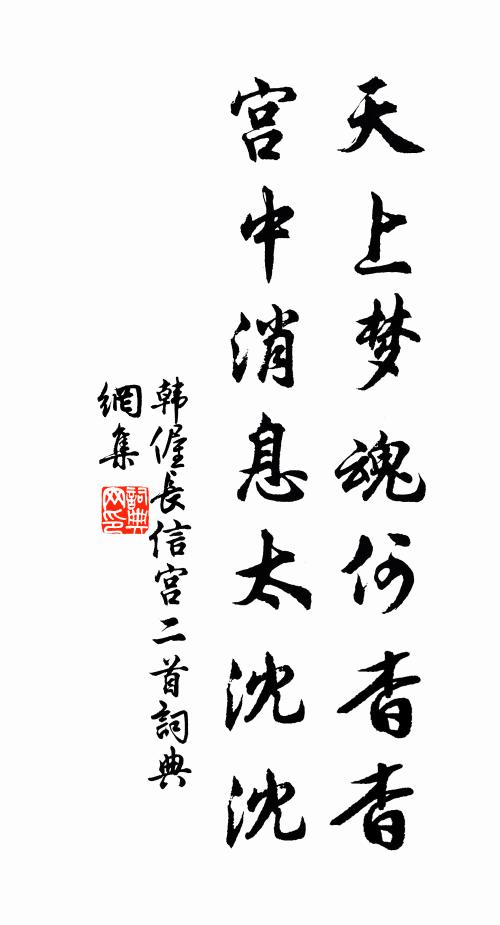 天上梦魂何杳杳
宫中消息太沈沈
韩偓長信宫二首詞典
網集
詞典
网印